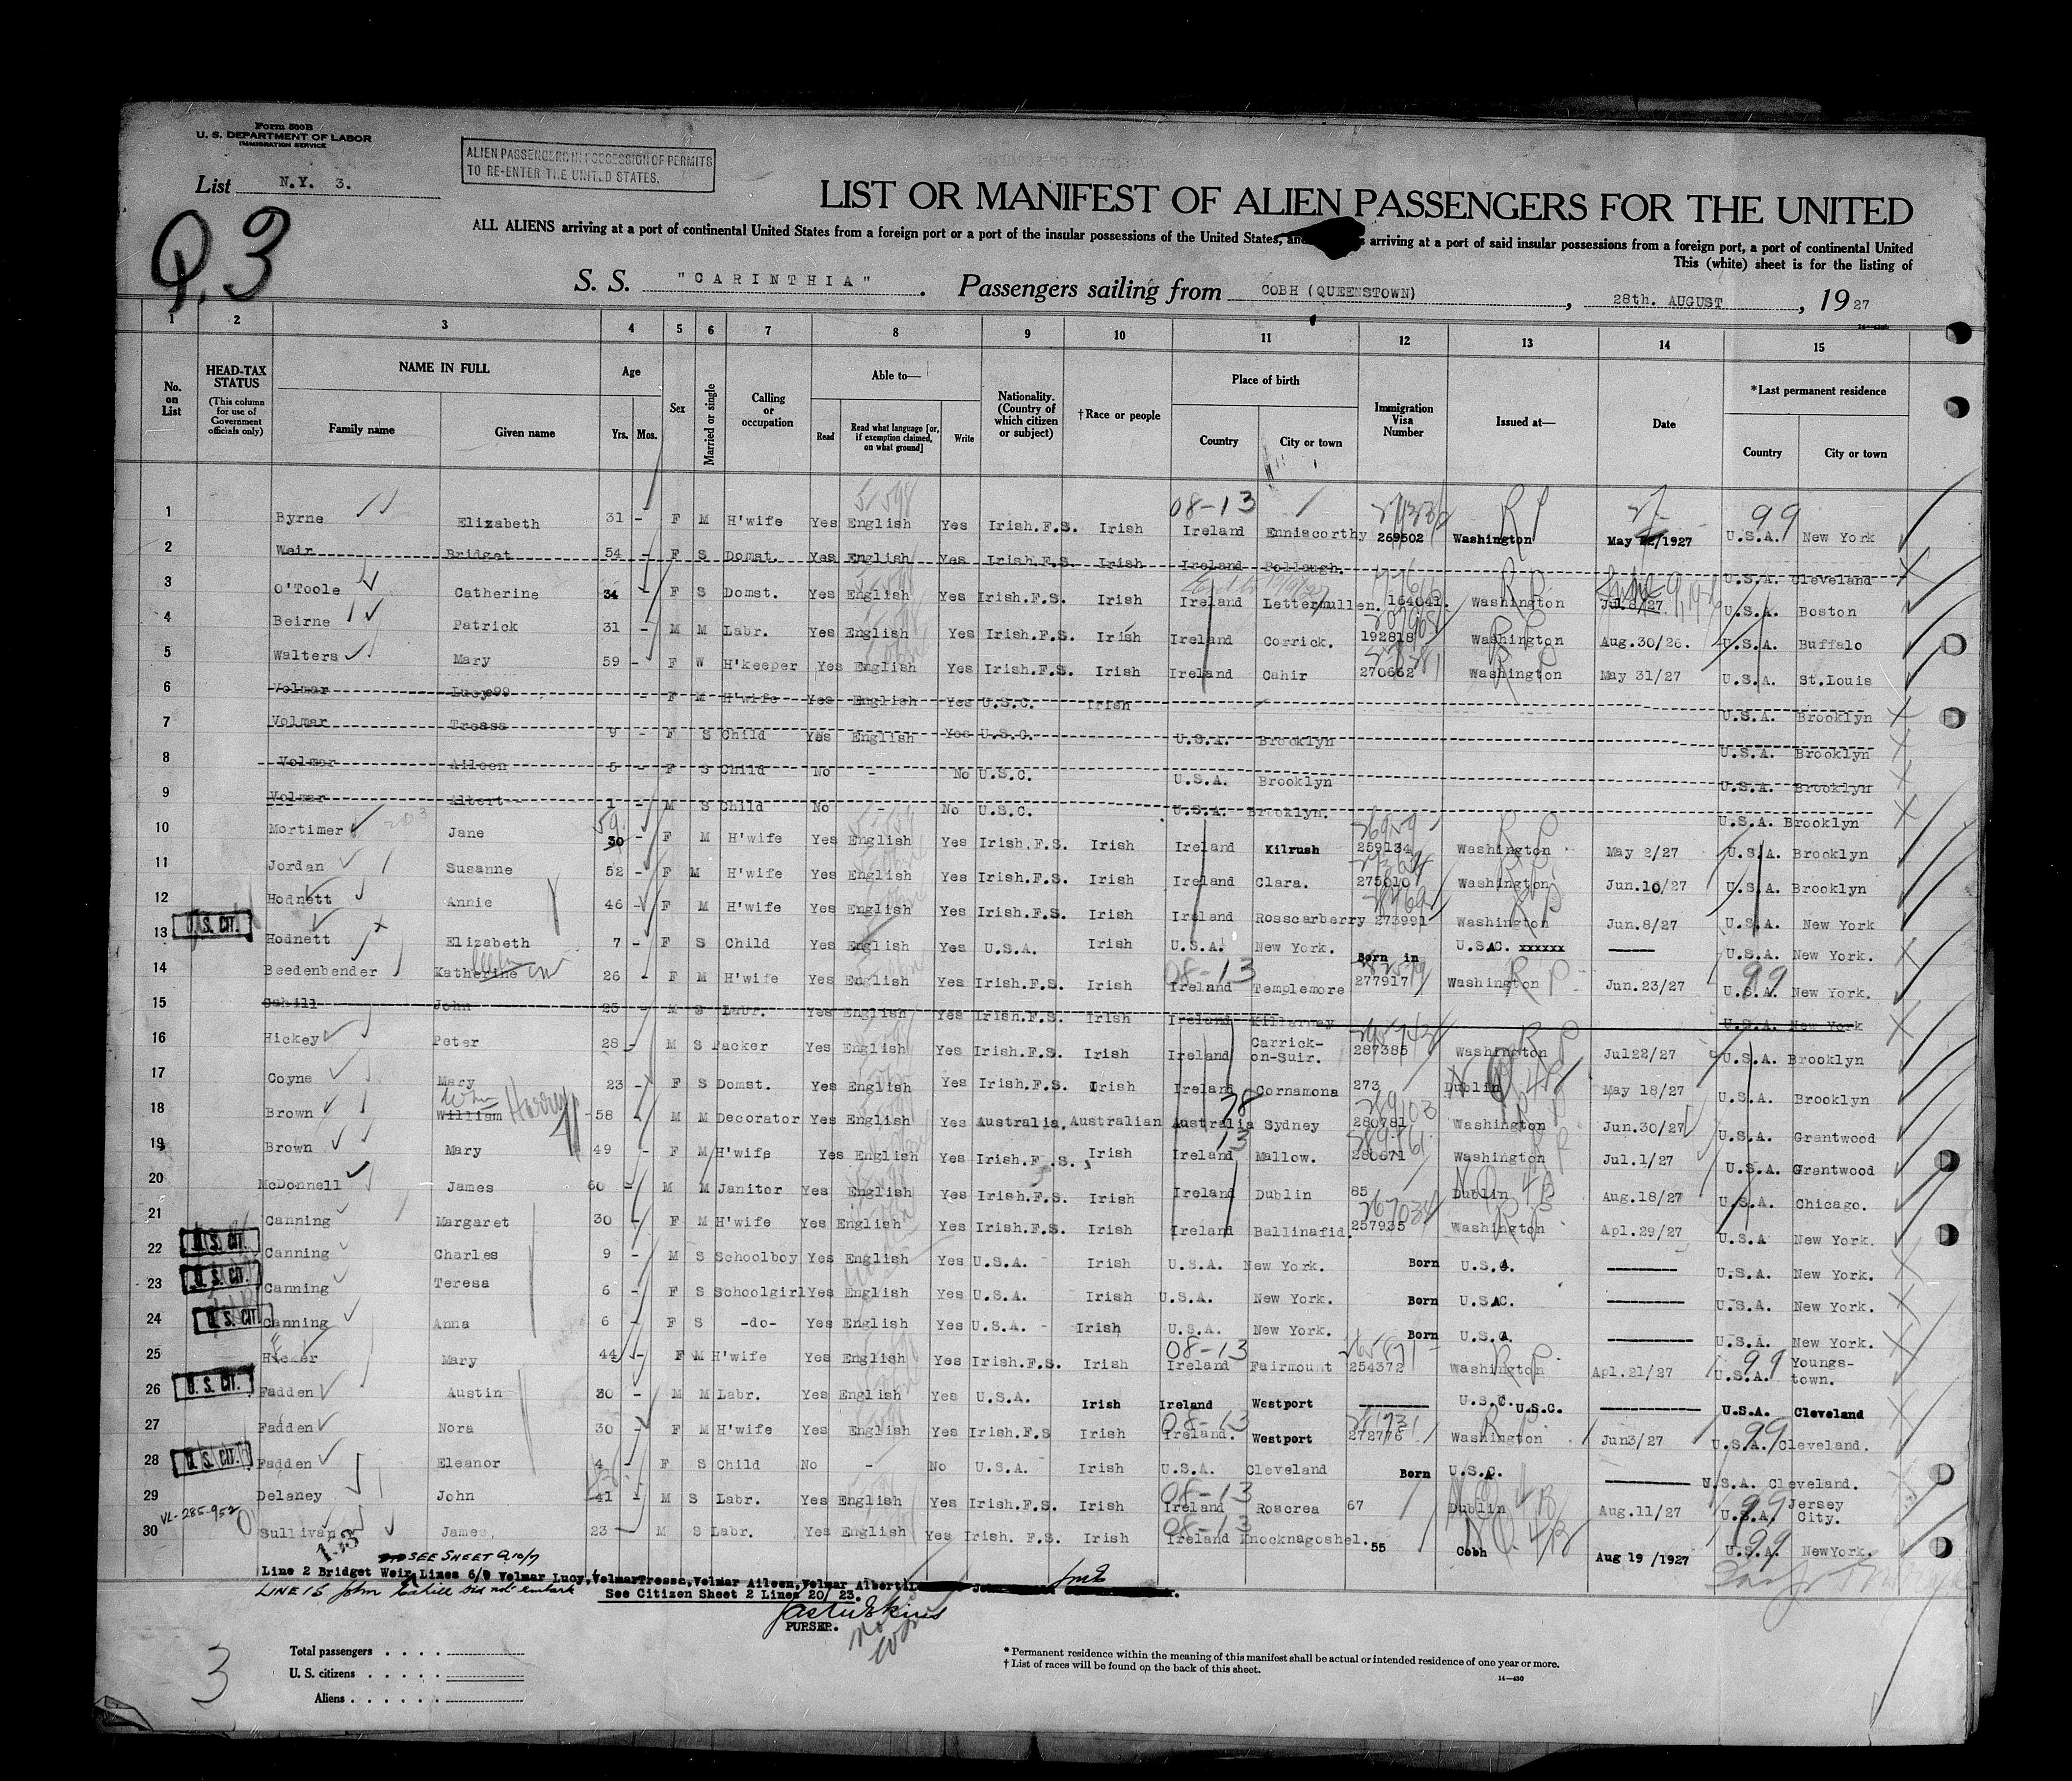 Form 500B
U. S. DEPARTMENT OF LABOR
IMMIGRATION SERVICE
List N.Y. 3.
ALIEN PASSENGERS IN POSSESSION OF PERMITS
TO RE-ENTER THE UNITED STATES.
Q.3
LIST OR MANIFEST OF ALIEN PASSENGERS FOR THE UNITED
ALL ALIENS arriving at a port of continental United States from a foreign port or a port of the insular possessions of the United States, and arriving at a port of said insular possessions from a foreign port, a port of continental United
This (white) sheet is for the listing of
S. S. "CARINTHIA". Passengers sailing from COBH (QUEENSTOWN), 28th. AUGUST, 1927
1 2 3 4 5 6 7 8 9 10 11 12 13 14 15
No. on List
HEAD-TAX STATUS (This column for use of Government officials only)
NAME IN FULL Family name Given name
Age Yrs. Mos.
Sex
Married or single
Calling or occupation
Able to— Read Read what language [or, if exemption claimed, on what ground] Write
Nationality. (Country of which citizen or subject)
† Race or people
Place of birth Country City or town
Immigration Visa Number
Issued at—
Date
* Last permanent residence Country City or town
1 Byrne Elizabeth 31 - F M H'wife Yes English Yes Irish.F.S. Irish 08-13 Ireland Enniscorthy 269502 Washington RP May /1927 99 U.S.A. New York
2 Weir Bridget 54 - F S Domst. Yes English Yes Irish.F.S. Irish Ireland Bollaugh. U.S.A. Cleveland
3 O'Toole Catherine 34 - F S Domst. Yes English Yes Irish.F.S. Irish Ireland Lettermullen. 164041. Washington RP Jul.8/27 U.S.A. Boston
4 Beirne Patrick 31 - M M Labr. Yes English Yes Irish.F.S. Irish Ireland Corrick. 192818 Washington RP Aug.30/26. U.S.A. Buffalo
5 Walters Mary 59 - F W H'keeper Yes English Yes Irish.F.S. Irish Ireland Cahir 270662 Washington RP May 31/27 U.S.A. St.Louis
6 Volmar Lucy 99 - F M H'wife Yes English Yes U.S.C. Irish U.S.A. Brooklyn
7 Volmar Tressa 9 - F S Child Yes English Yes U.S.C. U.S.A. Brooklyn U.S.A. Brooklyn
8 Volmar Aileen 5 - F S Child No - No U.S.C. U.S.A. Brooklyn U.S.A. Brooklyn
9 Volmar Albert 1 - M S Child No No U.S.C. U.S.A. Brooklyn. U.S.A. Brooklyn
10 Mortimer Jane 59 30 - F M H'wife Yes English Yes Irish.F.S. Irish Ireland Kilrush 259134 Washington RP May 2/27 U.S.A. Brooklyn
11 Jordan Susanne 52 - F M H'wife Yes English Yes Irish.F.S. Irish Ireland Clara. 275010 Washington RP Jun.16/27 U.S.A. Brooklyn
12 Hodnett Annie 46 - F M H'wife Yes English Yes Irish.F.S. Irish Ireland Rosscarberry 273991 Washington RP Jun.8/27 U.S.A. New York
13 U.S. CIT. Hodnett Elizabeth 7 - F S Child Yes English Yes U.S.A. Irish U.S.A. New York. Born in U.S.C. xxxxxx U.S.A. New York.
14 Beedenbender Katherine 26 - F M H'wife Yes English Yes Irish.F.S. Irish 08-13 Ireland Templemore 277917 Washington RP Jun.23/27 99 U.S.A. New York.
15 Cahill John 25 - M S Labr. Yes English Yes Irish.F.S. Irish Ireland Killarney U.S.A. New York
16 Hickey Peter 28 - M S Packer Yes English Yes Irish.F.S. Irish Ireland Carrick-on-Suir. 287385 Washington RP Jul22/27 U.S.A. Brooklyn
17 Coyne Mary 23 - F S Domst. Yes English Yes Irish.F.S. Irish Ireland Cornamona 273 Dublin May 18/27 U.S.A. Brooklyn
18 Brown William Harry 58 - M M Decorator Yes English Yes Australia. Australian 78 Australia Sydney 280781 Washington RP Jun.30/27 U.S.A. Grantwood
19 Brown Mary 49 - F M H'wife Yes English Yes Irish.F.S. Irish 13 Ireland Mallow. 280671 Washington RP Jul.1/27 U.S.A. Grantwood
20 McDonnell James 60 - M M Janitor Yes English Yes Irish.F.S. Irish Ireland Dublin 85 Dublin Aug.18/27 U.S.A. Chicago.
21 Canning Margaret 30 - F M H'wife Yes English Yes Irish.F.S. Irish Ireland Ballinafid. 257935 Washington RP Apl.29/27 U.S.A New York.
22 U.S. CIT. Canning Charles 9 - M S Schoolboy Yes English Yes U.S.A. Irish U.S.A. New York. Born U.S.A. U.S.A. New York.
23 U.S. CIT. Canning Teresa 6 - F S Schoolgirl Yes English Yes U.S.A. Irish U.S.A. New York. Born U.S.A. U.S.A. New York.
24 U.S. CIT. Canning Anna 6 - F S -do- Yes English Yes U.S.A. Irish U.S.A. New York. Born U.S.A. U.S.A. New York.
25 Hicker Mary 44 - F M H'wife Yes English Yes Irish.F.S. Irish 08-13 Ireland Fairmount 254372 Washington RP Apl.21/27 99 U.S.A. Youngs-town.
26 U.S. CIT. Fadden Austin 30 - M M Labr. Yes English Yes U.S.A. Irish Ireland Westport U.S.C. U.S.C. U.S.A. Cleveland
27 Fadden Nora 30 - F M H'wife Yes English Yes Irish.F.S Irish 08-13 Ireland. Westport 272776 Washington RP Jun3/27 99 U.S.A. Cleveland.
28 U.S. CIT. Fadden Eleanor 4 - F S Child No - No U.S.A. Irish U.S.A. Cleveland Born U.S.C. U.S.A. Cleveland.
29 Delaney John 41 - M S Labr. Yes English Yes Irish.F.S. Irish 08-13 Ireland Roscrea 67 Dublin Aug.11/27 99 U.S.A. Jersey City.
VL-285-952
30 Sullivan James. 23 - M S Labr. Yes English Yes Irish. F.S. Irish 08-13 Ireland Knocknagoshel. 55 Cobh Aug 19 /1927 99 U.S.A. NewYork.
SEE SHEET Q.10/7
Line 2 Bridget Weir Lines 6/9 Volmar Lucy, Volmar Tressa, Volmar Aileen, Volmar Albert
LINE 15 John Cahill did not embark
See Citizen Sheet 2 Lines 20/ 23.
PURSER.
Total passengers . . . .
U. S. citizens . . . . .
Aliens . . . . . .
3
* Permanent residence within the meaning of this manifest shall be actual or intended residence of one year or more.
† List of races will be found on the back of this sheet.
14—430